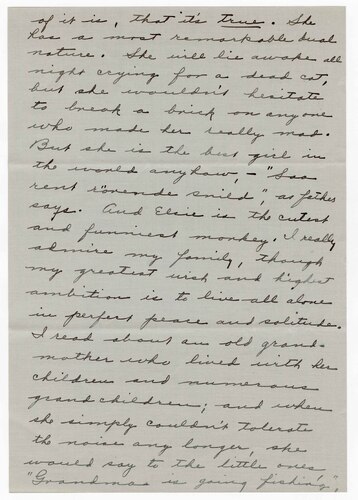 of it is, that it's true. She
has a most remarkable dual
nature. She will lie awake all
night crying for a dead cat,
but she wouldn't hesitate
to break a brick on anyone
who made her really mad.
But she is the best girl in
the world anyhow, – "Saa
rent r'örende snild", as father
says. And Elsie is the cutest
and funniest monkey. I really
admire my family, though
my greatest wish and highest
ambition is to live all alone
in perfect peace and solitude.
I read about an old grand-
mother who lived with her
children and numerous
grandchildren; and when
she simply couldn't tolerate
the noise any longer, she
would say to the little ones
"Grandma is going fishing",